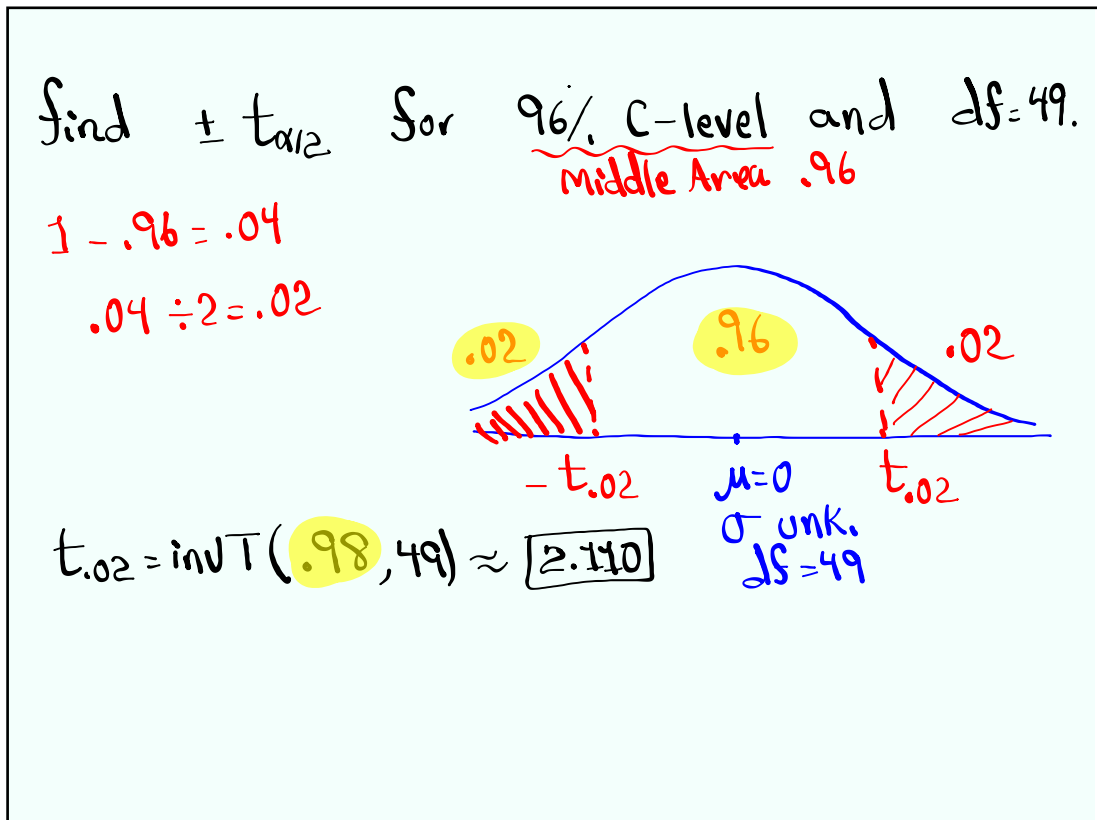 find ± tα/2 for 96% C-level and df=49.
Middle Area .96
1 - .96 = .04
.04 ÷ 2 = .02
.02 .96 .02
- t.02 μ=0 t.02
σ unk.
df=49
t.02 = invT(.98, 49) ≈ 2.110